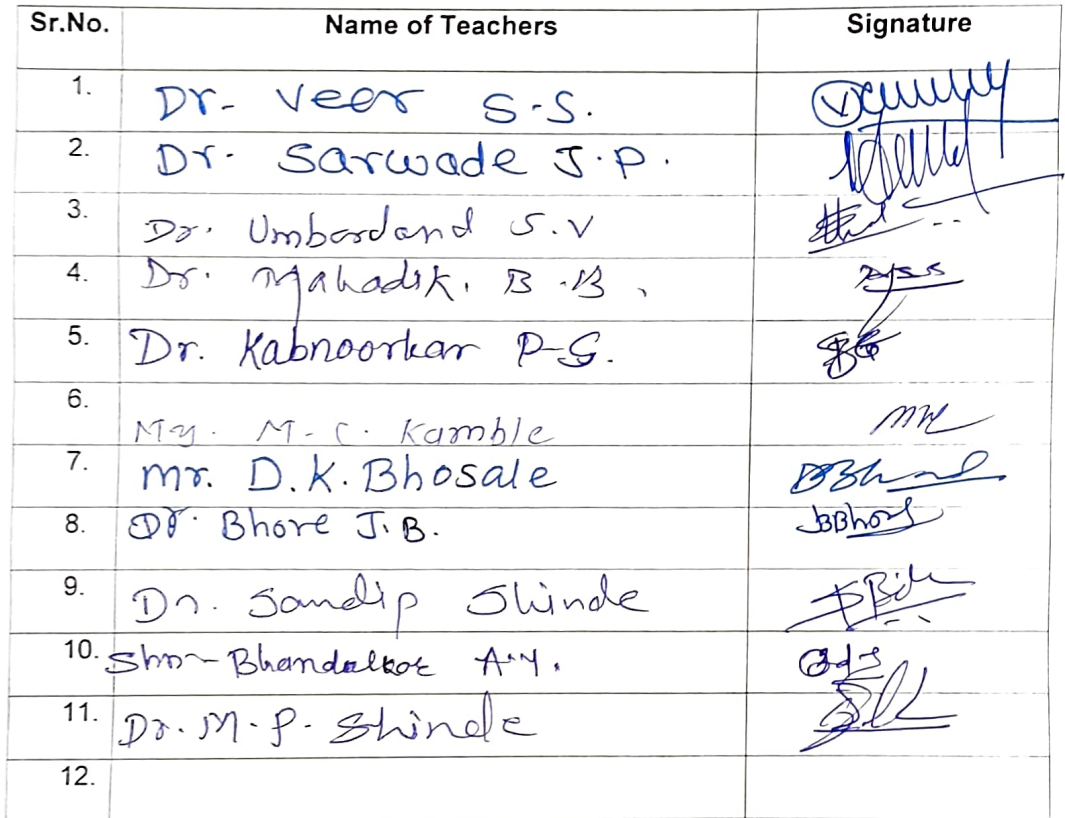 Sr.No. Name of Teachers Signature
1. Dr- Veer S-S.
2. Dr. Sarwade J.P.
3. Dr. Umbardand S.V
4. Dr. Mahadik. B.B.
5. Dr. Kabnoorkar P-G.
6. Mr. M-C. Kamble
7. mr. D.K. Bhosale
8. Dr. Bhore J.B. JBBhore
9. Dr. Sandip Shinde
10. Shri Bhandalkar A.Y.
11. Dr. M.P. Shinde
12.